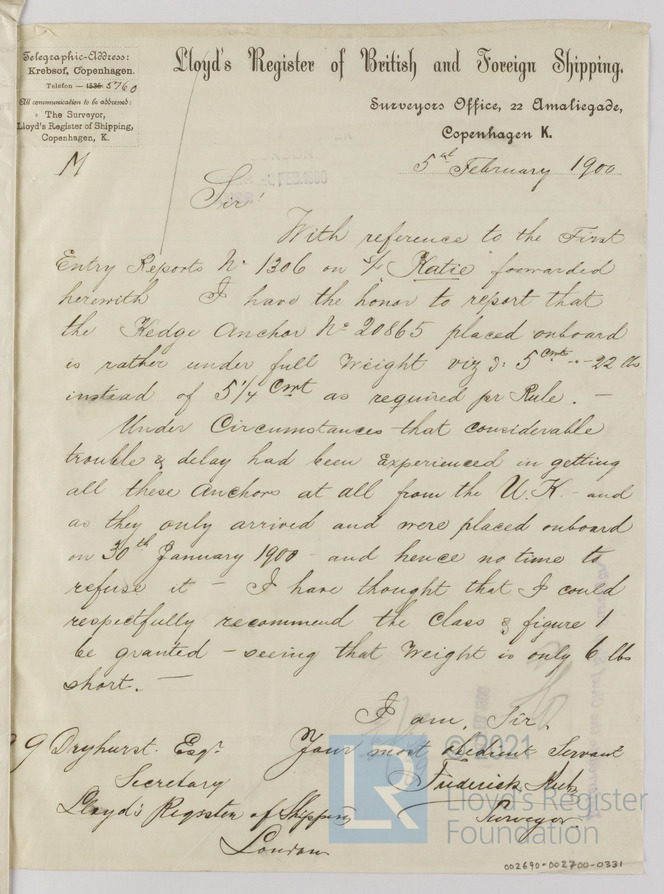 Telegraphic-Address:
Krebsof, Copenhagen.
Telefon — 1536 5760
All communication to be addressed:
The Surveyor,
Lloyd's Register of Shipping,
Copenhagen, K.
Lloyd's Register of British and Foreign Shipping.
Surveyors Office, 22 Amaliegade,
Copenhagen K.
5th February 1900
Sir
With reference to the First
Entry Reports No 1306 on "Katie" forwarded
herewith I have the honor to report that
the Kedge Anchor No 20865 placed onboard
is rather under full Weight viz 3: 5 Cwt .. - 22 lbs
instead of 5 1/4 Cwt as required pr Rule. —
Under Circumstances that considerable
trouble & delay had been Experienced in getting
all these Anchors at all from the U.K. - and
as they only arrived and were placed onboard
on 30th January 1900 - and hence no time to
refuse it - I have thought that I could
respectfully recommend the Class & figure 1
be granted - seeing that Weight is only 6 lbs
short. —
I am, Sir,
Your most obedient Servant
Frederick
Surveyor.
Dryhurst. Esqr
Secretary
Lloyd's Register of Shipping
London
© 2021
LR
Lloyd's Register
Foundation
002690-002700-0331